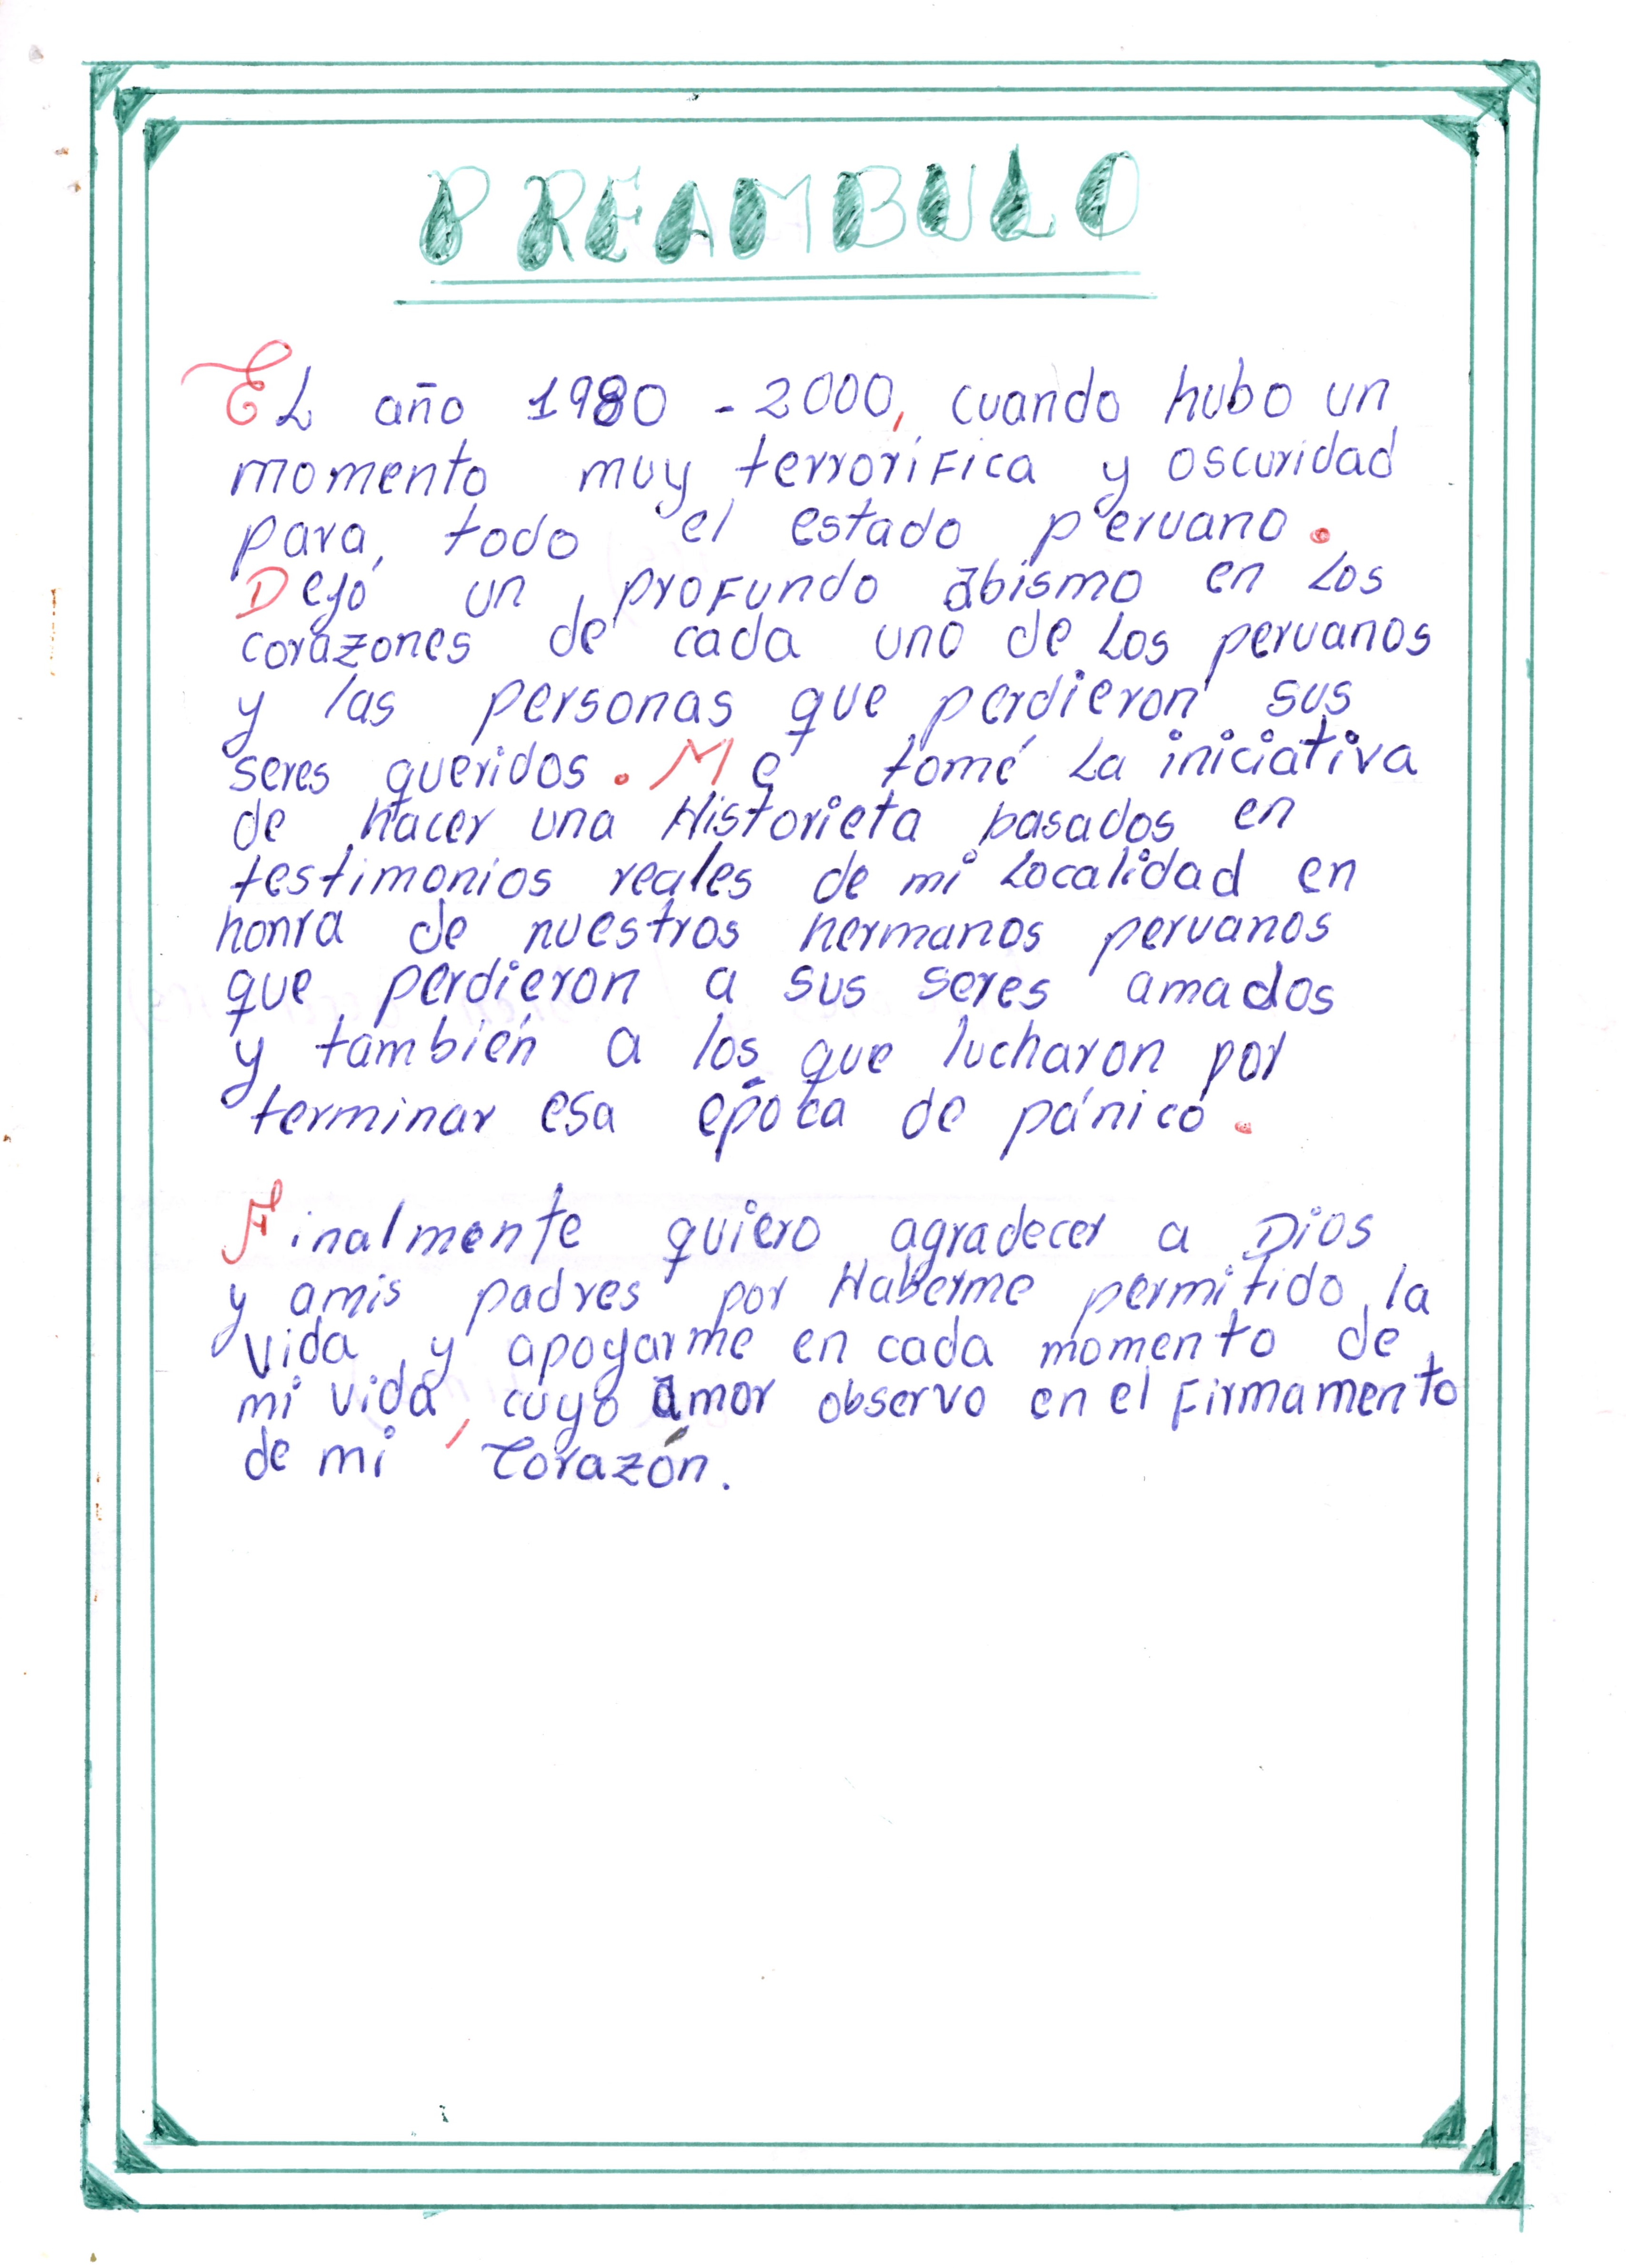 PREAMBULO
EL año 1980 - 2000, cuando hubo un
momento muy terrorífica y oscuridad
para, todo el estado peruano.
Dejó un profundo abismo en Los
corazones de cada uno de Los peruanos
y las personas que perdieron sus
seres queridos. Me tomé La iniciativa
de hacer una Historieta basados en
testimonios reales de mi Localidad en
honra de nuestros hermanos peruanos
que perdieron a sus seres amados
y también a los que lucharon por
terminar esa época de pánico.
Finalmente quiero agradecer a Dios
y amis padres por Haberme permitido la
vida y apoyarme en cada momento de
mi vida, cuyo amor observo en el Firmamento
de mi Corazón.